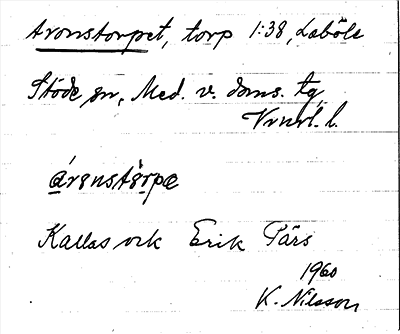 Aronstorpet, torp 1:38, Laböle
Stöde sn, Med. v. doms. tg
Vrnrl. l.
árənstårpə
Kallas ock Erik Pärs
1960
K. Nilsson